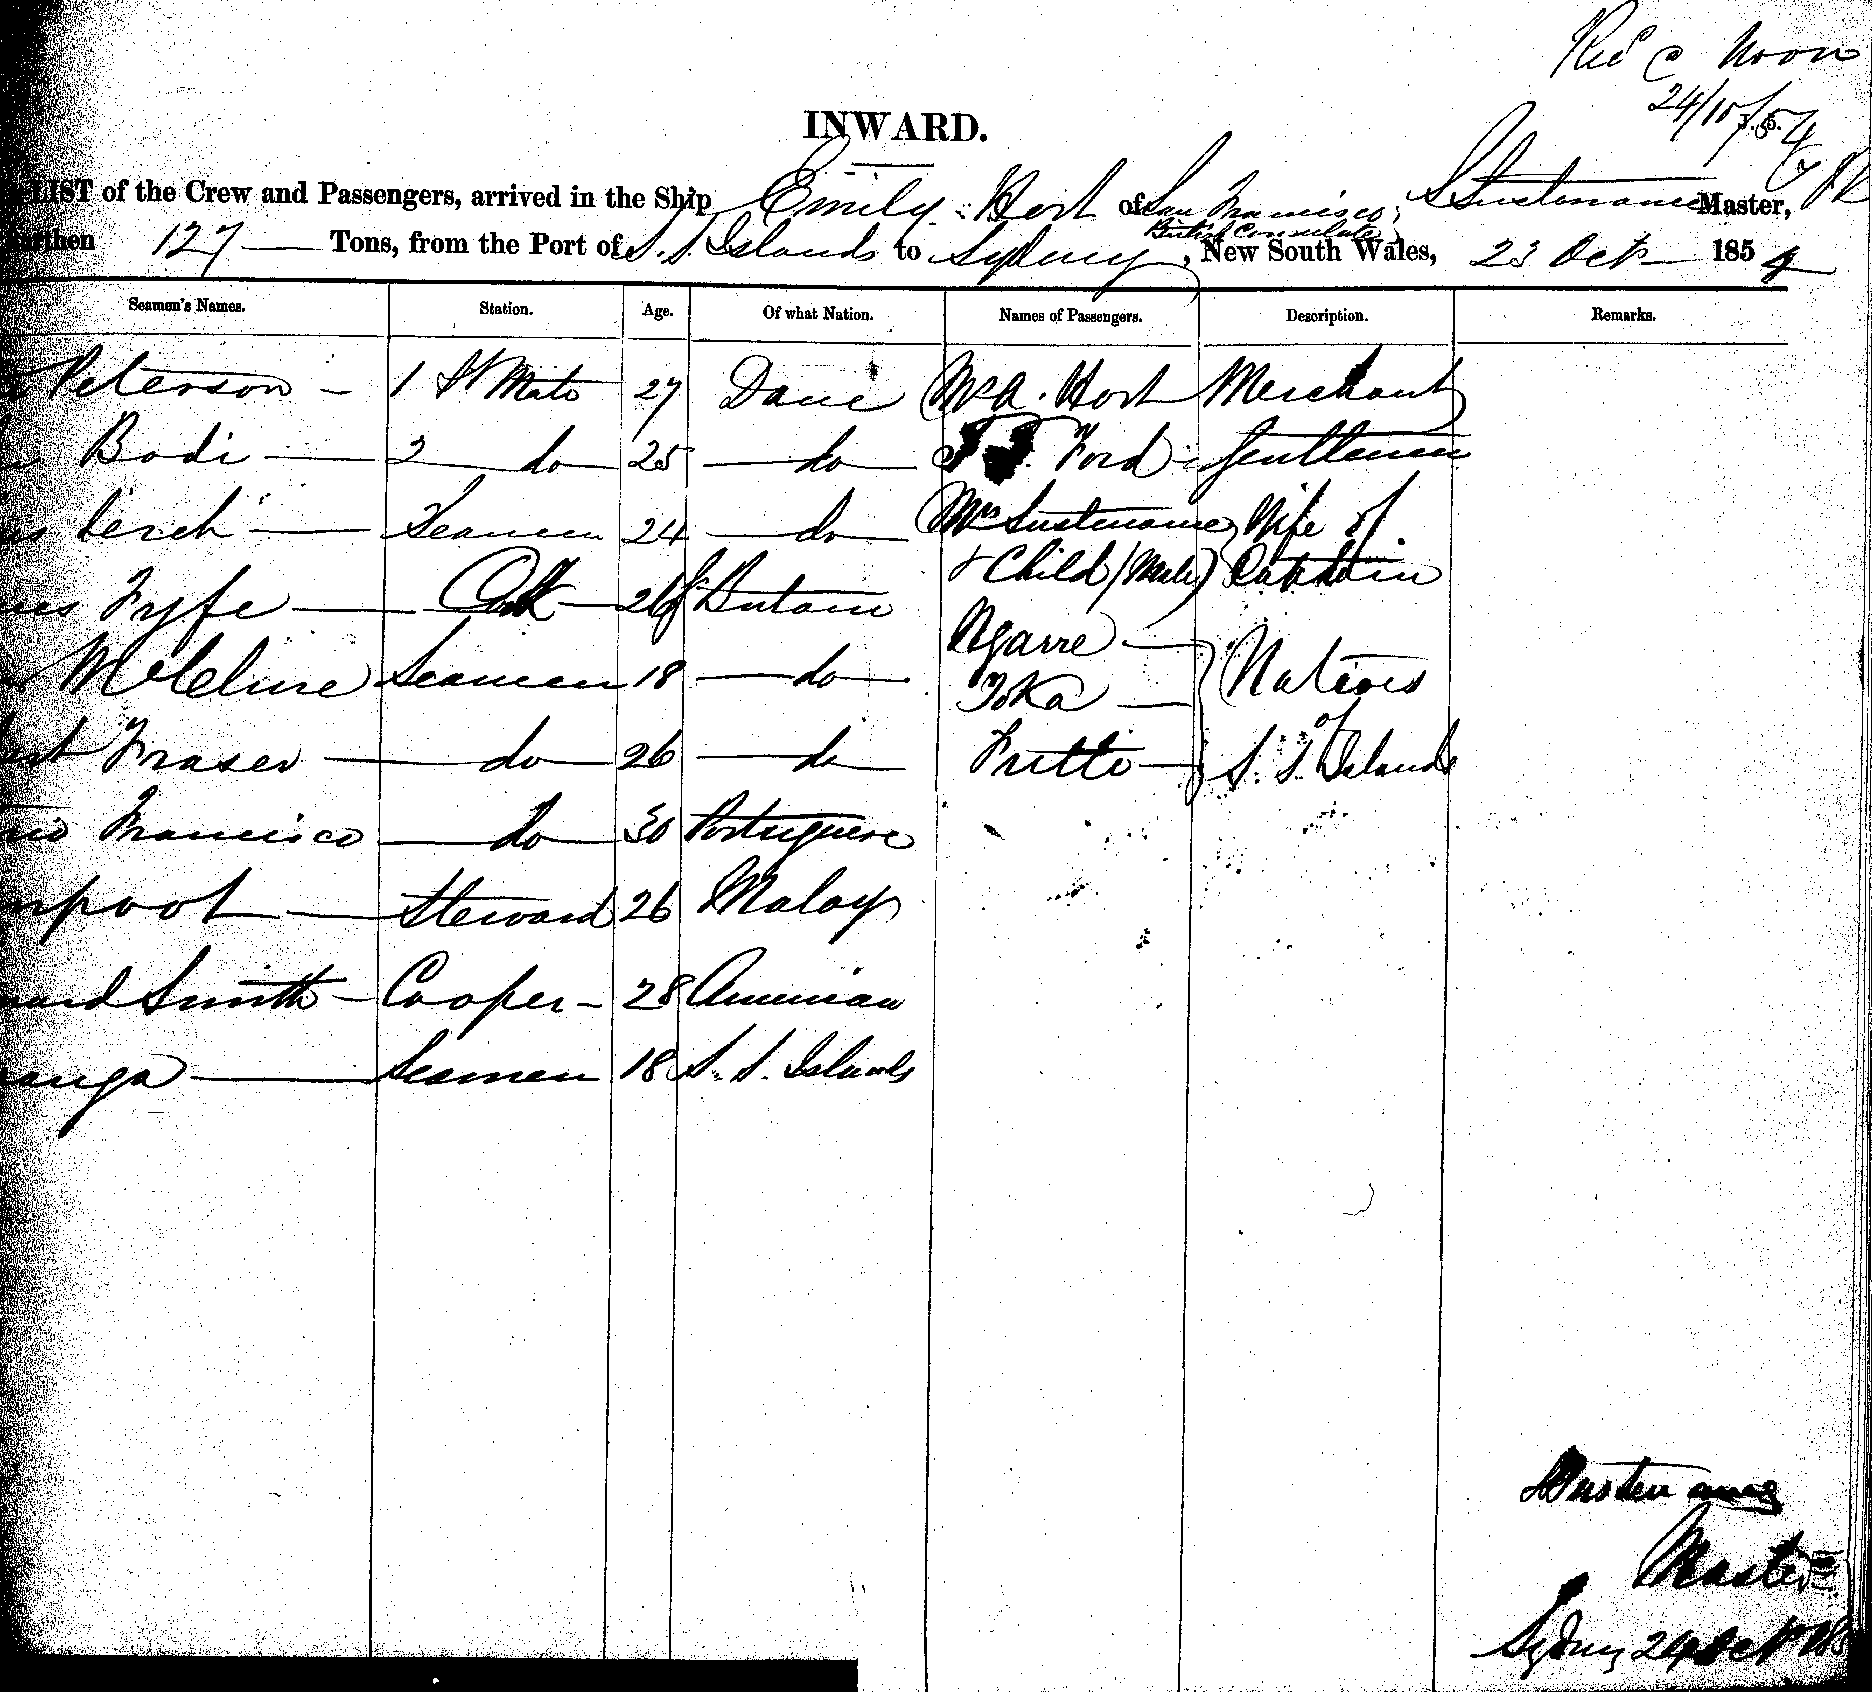 Recd @ Noon
24/10/54
INWARD.
LIST of the Crew and Passengers, arrived in the Ship Emily Hort of San Francisco, Sustenance Master,
Burthen 127 Tons, from the Port of S. S. Islands to Sydney, New South Wales, 23 Oct 1854
British Consulate
Seamen's Names. Station. Age. Of what Nation. Names of Passengers. Description. Remarks.
Peterson 1 st Mate 27 Dane Hort Merchant
Bodi 2 do 25 do Ford Gentleman
Seamen 24 do Mrs Sustenance Wife of
& Child (Male) Captain
Fyfe Cook 26 Britain
Ngarre
McClure Seamen 18 do Natives
Toka
Fraser do 26 do Fritto of S. S. Islands
Francisco do 30 Portuguese
Steward 26 Malay
Smith Cooper 28 American
Seamen 18 S. S. Islands
Sustenance
Master
Sydney 24 Oct